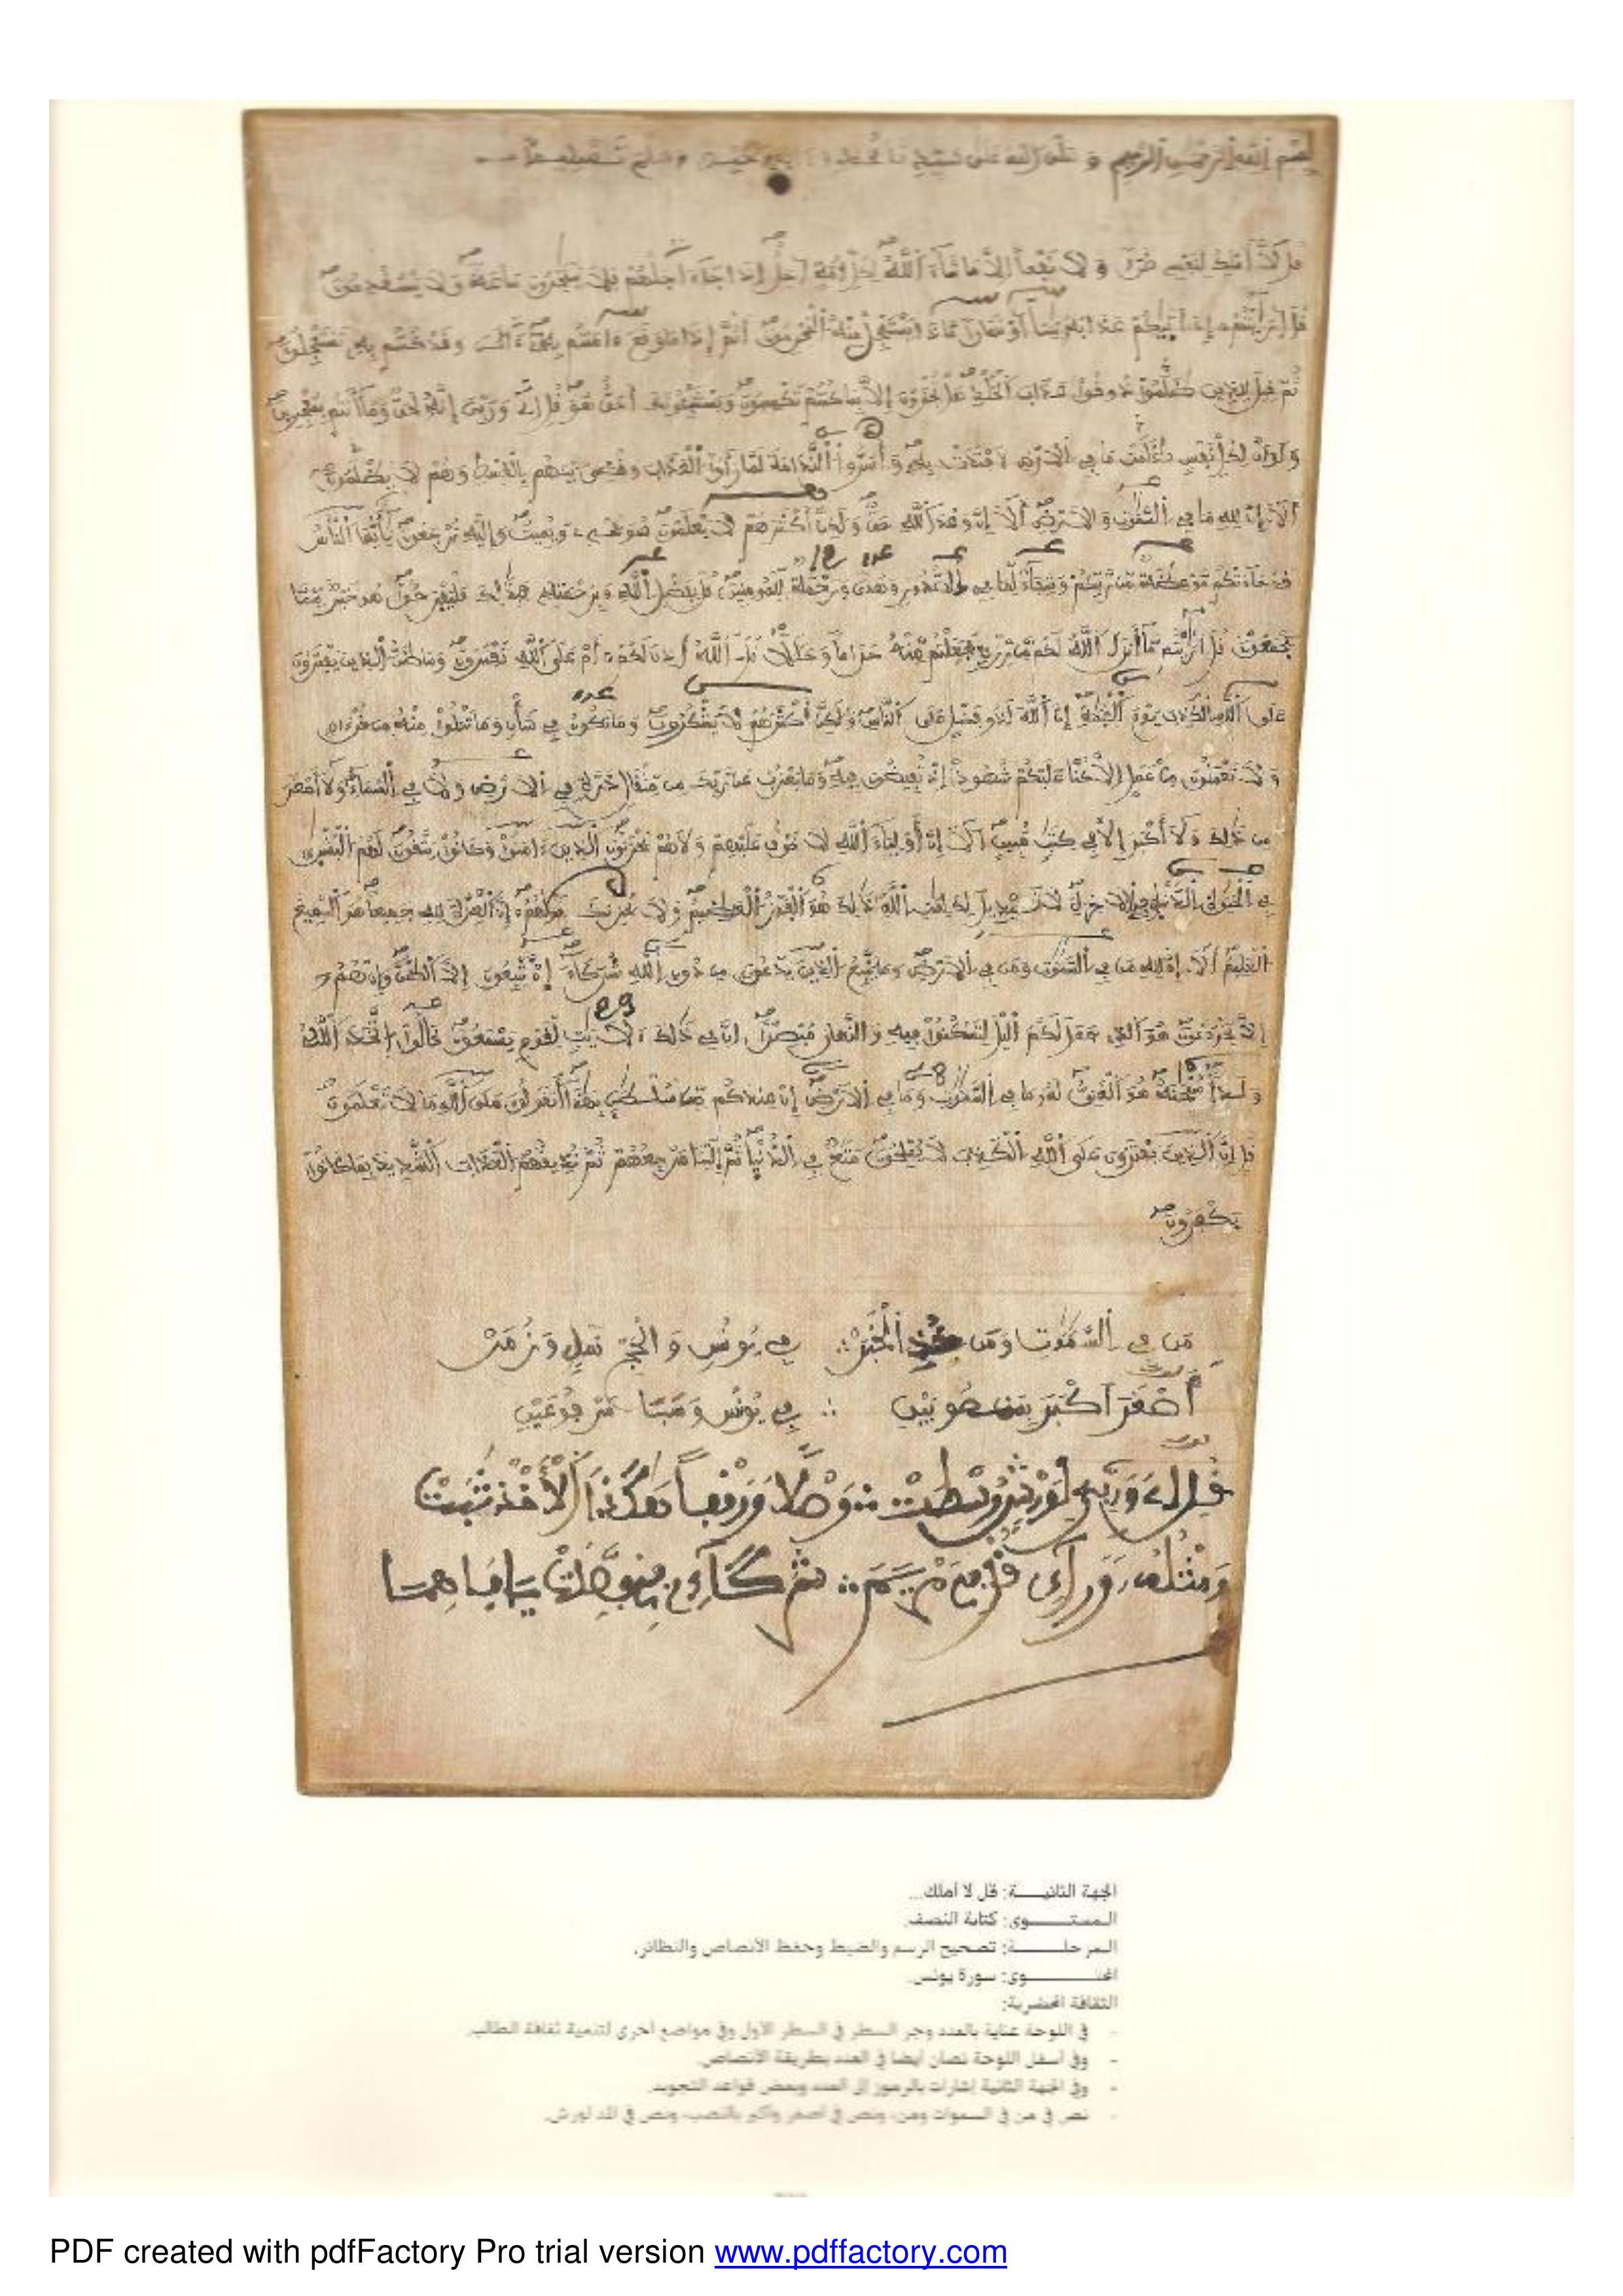 بسم الله الرحمن الرحيم و صلى الله على سيدنا محمد وسلم تسليما
قل لا أملك لنفسي ضرا ولا نفعا إلا ما شاء الله لكل أمة أجل إذا جاء اجلهم فلا يستخرون ساعة ولا يستقدمون
قل ارأيتم إن أتيكم عذابه بيتا أو نهارا ماذا يستعجل منه المجرمون أثم إذا ما وقع ءامنتم به ءالن وقد كنتم به تستعجلون
ثم قيل للذين ظلموا ذوقوا عذاب الخلد هل تجزون إلا بما كنتم تكسبون ويستنبونك أحق هو قل إي وربي إنه لحق وما أنتم بمعجزين
ولو أن لكل نفس ظلمت ما في الارض لافتدت به وأسروا الندامة لما رأوا العذاب وقضي بينهم بالقسط وهم لا يظلمون
ألا إن لله ما في السموت والارض ألا إن وعد الله حق ولكن أكثرهم لا يعلمون هو يحي ويميت وإليه ترجعون يأيها الناس
قد جاءتكم موعظة من ربكم وشفاء لما في الصدور وهدى ورحمة للمومنين قل بفضل الله وبرحمته فبذلك فليفرحوا هو خير مما
يجمعون قل ارأيتم ما أنزل الله لكم من رزق فجعلتم منه حراما وحللا قل ـالله أذن لكم أم على الله تفترون وما ظن الذين يفترون
على الله الكذب يوم القيمة إن الله لذو فضل على الناس ولكن أكثرهم لا يشكرون وما تكون في شأن وما تتلوا منه من قرءان
ولا تعملون من عمل إلا كنا عليكم شهودا إذ تفيضون فيه وما يعزب عن ربك من مثقال ذرة في الارض ولا في السماء ولا أصغر
من ذلك ولا أكبر إلا في كتب مبين ألا إن أولياء الله لا خوف عليهم ولا هم يحزنون الذين ءامنوا وكانوا يتقون لهم البشرى
في الحيوة الدنيا وفي الاخرة لا تبديل لكلمت الله ذلك هو الفوز العظيم ولا يحزنك قولهم إن العزة لله جميعا هو السميع
العليم ألا إن لله من في السموت ومن في الارض وما يتبع الذين يدعون من دون الله شركاء إن يتبعون إلا الظن وإن هم
إلا يخرصون هو الذي جعل لكم اليل لتسكنوا فيه والنهار مبصرا إن في ذلك لأيت لقوم يسمعون قالوا اتخذ الله
ولدا سبحنه هو الغني له ما في السموت وما في الارض إن عندكم من سلطن بهذا أتقولون على الله ما لا تعلمون
قل إن الذين يفترون على الله الكذب لا يفلحون متع في الدنيا ثم إلينا مرجعهم ثم نذيقهم العذاب الشديد بما كانوا
يكفرون
من في السموت ومن الخبر ∴ في يونس والحج نمل وزمر
أصغر أكبر ∴ في يونس وسبا مرفوعين
قل إي وربي لورش وسطت ∴ وصلا ووقفا هكذا الأخذ ثبت
ومثله وراءي في مريم ∴ شركاءي
الجهة الثانيــة: قل لا أملك...
المستــوى: كتابة النصف.
المرحلــة: تصحيح الرسم والضبط وحفظ الأنصاص والنظائر.
المحتــوى: سورة يونس.
الثقافة المحضرية:
- في اللوحة عناية بالعدد وجر السطر في السطر الأول وفي مواضع أخرى لتنمية ثقافة الطالب.
- وفي أسفل اللوحة نصان أيضا في العدد بطريقة الأنصاص.
- وفي الجهة الثانية إشارات بالرموز إلى العدد وبعض قواعد التجويد.
- نص في من في السموات ومن، ونص في أصغر وأكبر بالنصب، ونص في المد لورش.
PDF created with pdfFactory Pro trial version www.pdffactory.com